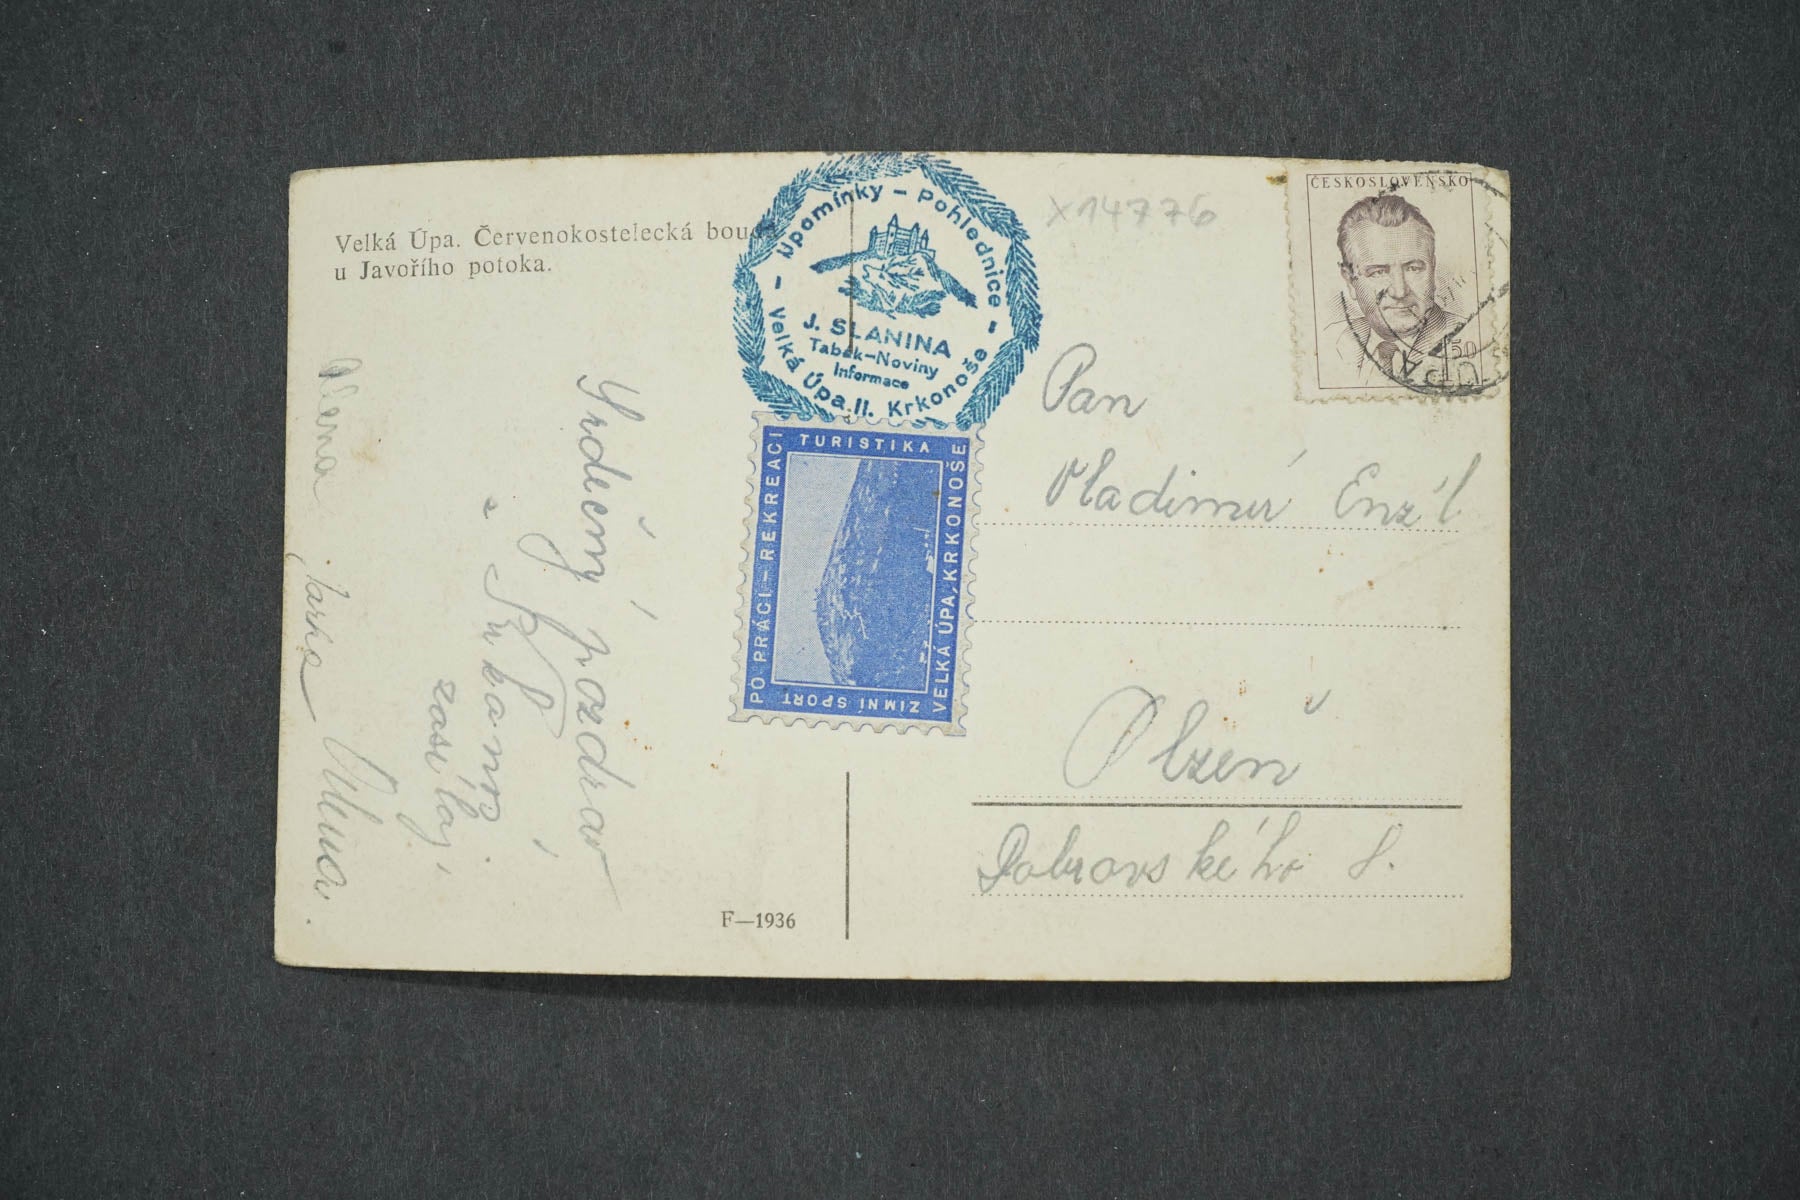 Velká Úpa. Červenokostelecká bouda
u Javořího potoka.
Upomínky – Pohlednice –
J. SLANINA
Tabák–Noviny
Informace
– Velká Úpa II. Krkonoše
X14776
ČESKOSLOVENSKO
1.50
ÚPA
TURISTIKA
PO PRÁCI – REKREACI
VELKÁ ÚPA, KRKONOŠE
ZIMNÍ SPORT
Srdečný pozdrav
z Krkonoš
zasílají
Jarka
Pan
Vladimír Enzl
Plzeň
Dobrovského 8.
F—1936